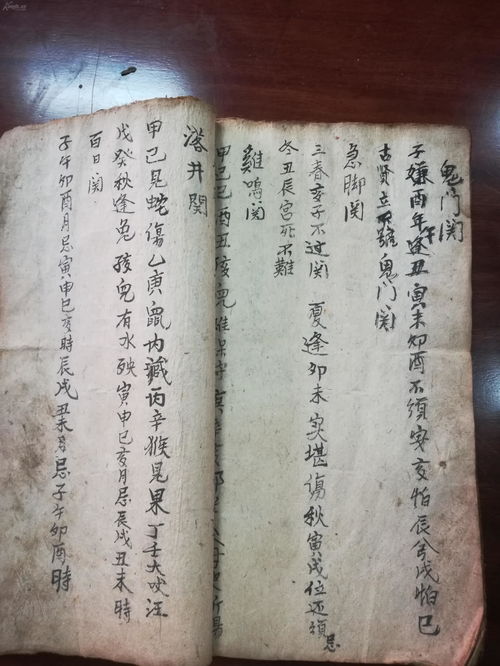 鬼门関
子嫌酉年午逢丑寅未卯酉不須安亥怕辰兮戌怕巳
古贤立鬼门関
急脚関
三春亥子不过関 夏逢卯未实堪傷秋寅戌位还須忌
冬丑辰宫死不難
雞鳴関
甲己巳酉丑孩兒难保守
落井関
甲己見蛇傷乙庚鼠内藏丙辛猴見果丁壬犬吠汪
戊癸秋逢兔孩兒有水殃寅申巳亥月忌辰戌丑未時
百日関
子午卯酉月忌寅申巳亥時辰戌丑未月忌子午卯酉時